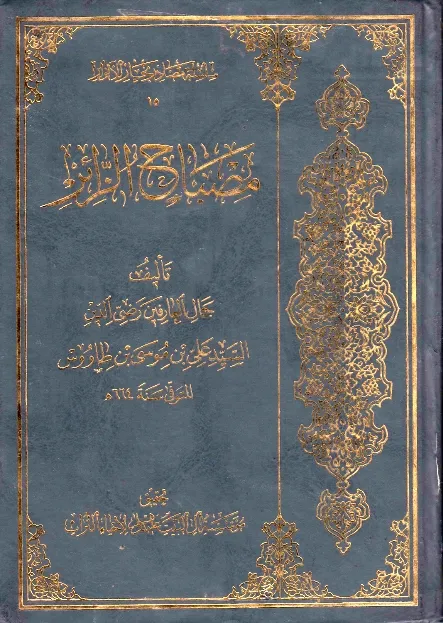 سلسلة مصادر بحار الأنوار
١٥
مصباح الزائر
تأليف
جمال العارفين رضي الدين
السيد علي بن موسى بن طاووس
المتوفى سنة ٦٦٤ ه
تحقيق
مؤسسة آل البيت عليهم السلام لإحياء التراث